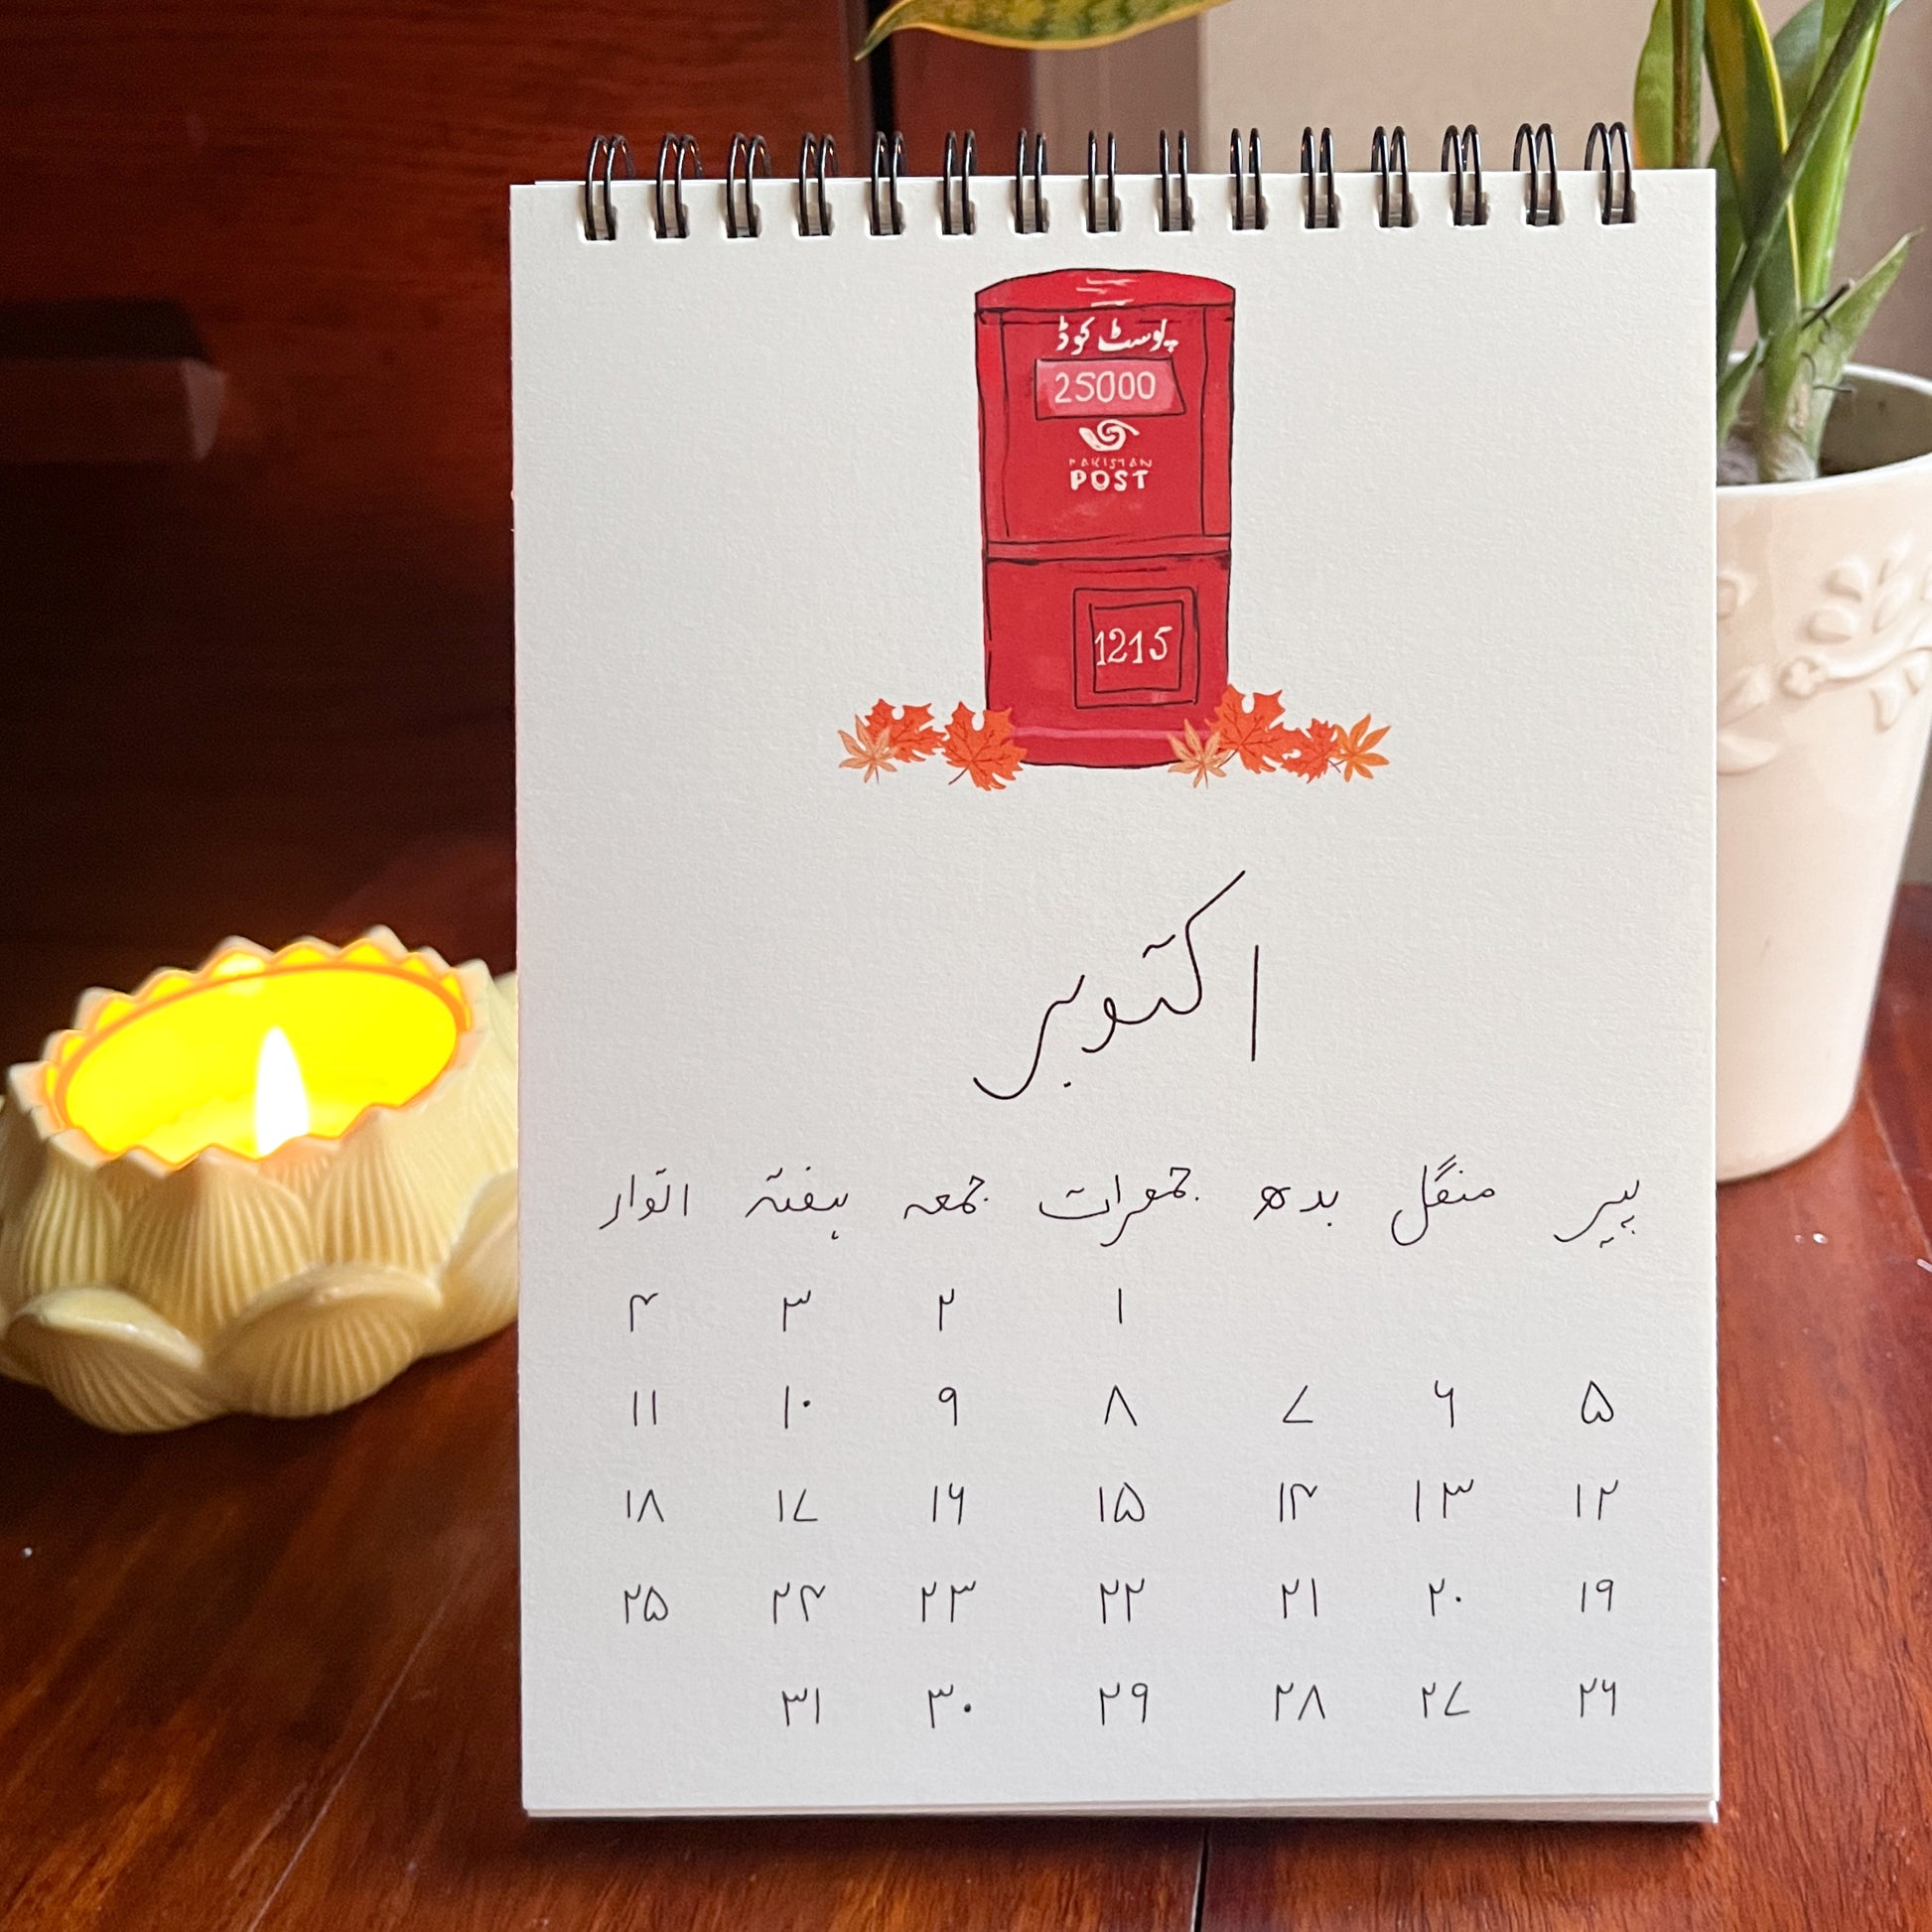 پوسٹ کوڈ
25000
PAKISTAN
POST
1215
اکتوبر
پیر منگل بدھ جمعرات جمعہ ہفتہ اتوار
۱ ۲ ۳ ۴
۵ ۶ ۷ ۸ ۹ ۱۰ ۱۱
۱۲ ۱۳ ۱۴ ۱۵ ۱۶ ۱۷ ۱۸
۱۹ ۲۰ ۲۱ ۲۲ ۲۳ ۲۴ ۲۵
۲۶ ۲۷ ۲۸ ۲۹ ۳۰ ۳۱